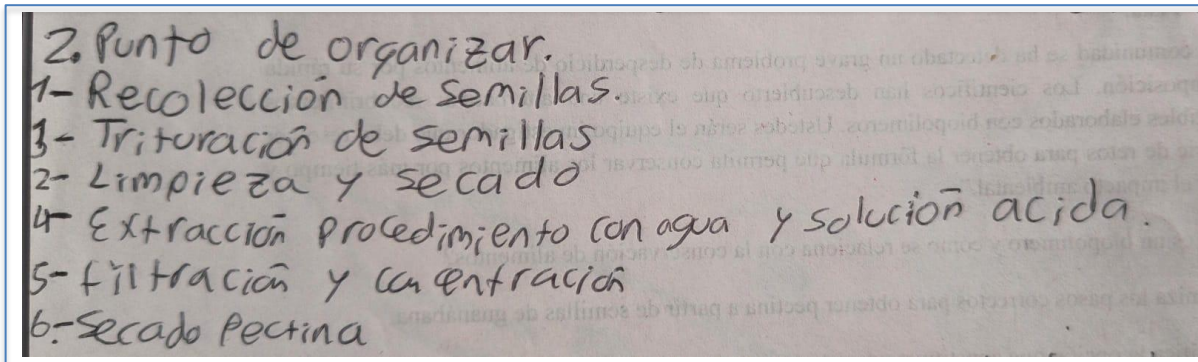 2. Punto de organizar.
1- Recoleccion de semillas.
3- Trituración de semillas
2- Limpieza y secado
4- Extracción procedimiento con agua y solución acida.
5- filtración y concentración
6.- Secado Pectina